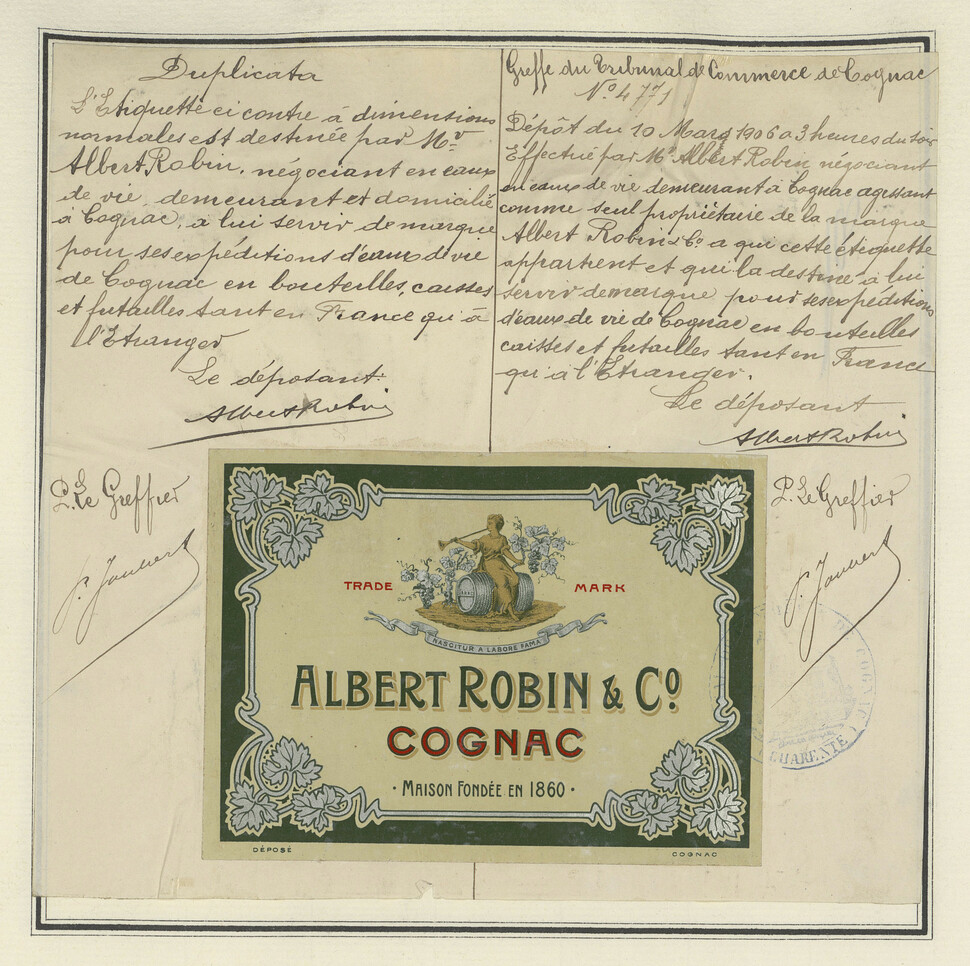 Duplicata
L'Etiquette ci contre à dimensions
normales est destinée par Mr
Albert Robin, négociant en eaux
de vie, demeurant et domicilié
à Cognac, à lui servir de marque
pour ses expéditions d'eaux de vie
de Cognac en bouteilles, caisses
et futailles tant en France qu'à
l'Etranger
Le déposant:
Albert Robin
P. Le Greffier
Greffe du Tribunal de Commerce de Cognac
No 4771
Dépôt du 10 Mars 1906 à 3 heures du soir
Effectué par Mr Albert Robin, négociant
en eaux de vie demeurant à Cognac agissant
comme seul propriétaire de la marque
Albert Robin & Co a qui cette étiquette
appartient et qui la destine à lui
servir de marque pour ses expéditions
d'eaux de vie de Cognac en bouteilles
caisses et futailles tant en France
qu'à l'Etranger.
Le déposant
Albert Robin
P. Le Greffier
TRADE MARK
NASCITUR A LABORE FAMA
ALBERT ROBIN & Co
COGNAC
· MAISON FONDÉE EN 1860 ·
DÉPOSÉ
COGNAC
DE COGNAC
(CHARENTE)